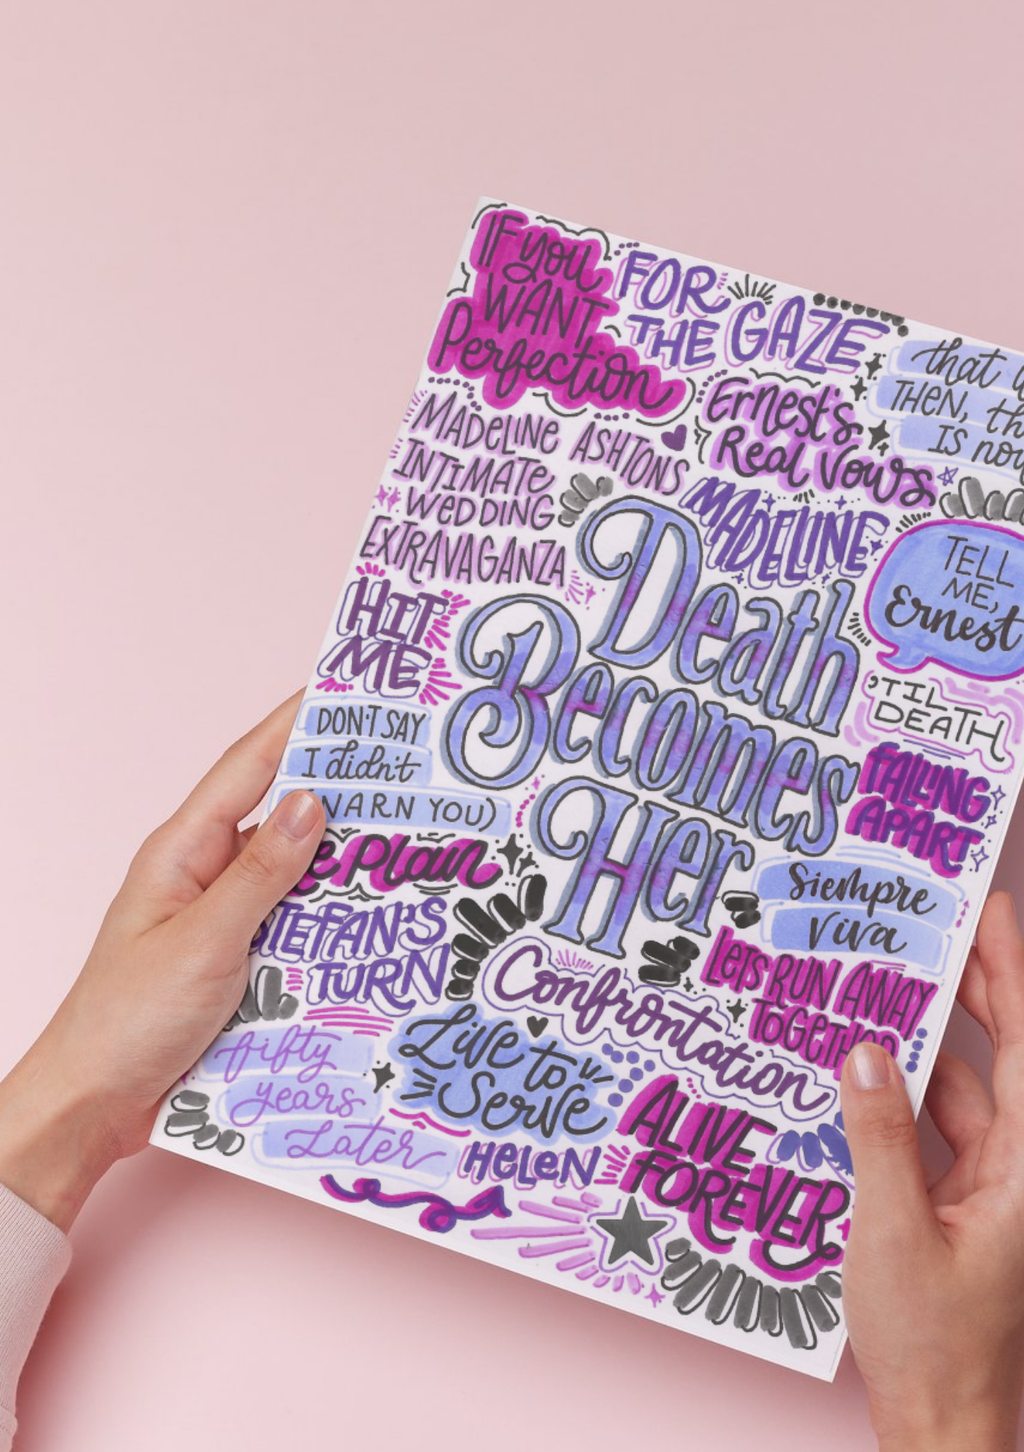 IF you
WANT
Perfection
FOR
THE GAZE
that
THEN,
IS
Ernest's
Real Vows
MADELINE ASHTONS
INTIMATE
WEDDING
EXTRAVAGANZA
MADELINE
TELL
ME,
Ernest
Death
Becomes
Her
HIT
ME
'TIL
DEATH
DON'T SAY
I didn't
WARN YOU)
FALLING
APART
Plan
Siempre
Viva
STEFAN'S
TURN
LETS RUN AWAY
TOGETHER
Confrontation
fifty
years
Later
Live to
Serve
HELEN
ALIVE
FOREVER